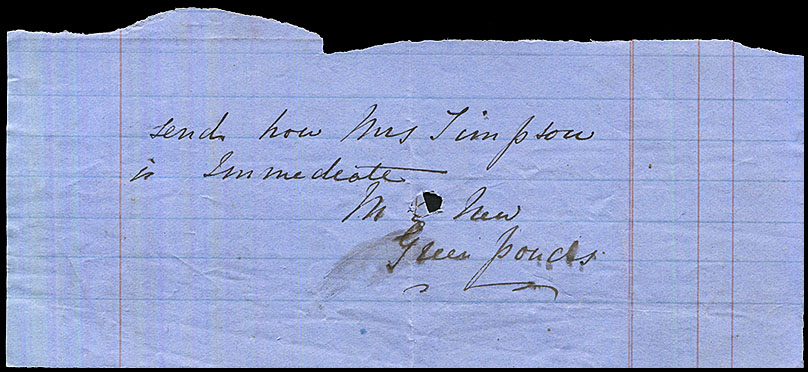 send how Mrs Simpson
is Immediate
M New
Green Ponds